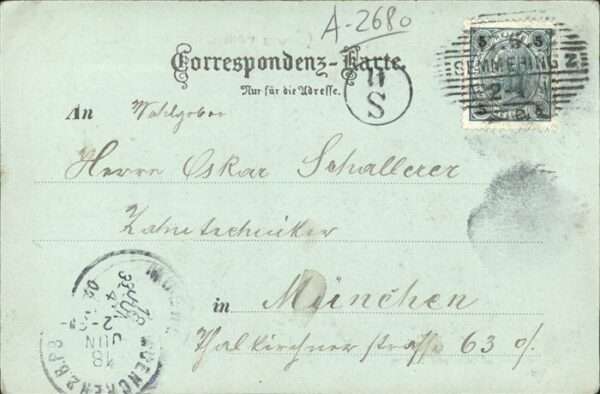 A-2680
Correspondenz-Karte.
Nur für die Adresse.
11
S
5 5
SEMMERING 2
An Wohlgeboren
Herrn Oskar Schallerer
Zahntechniker
in München
Thalkirchner strasse 63 0/.
MUENCHEN 2.B.P.3
18
JUN